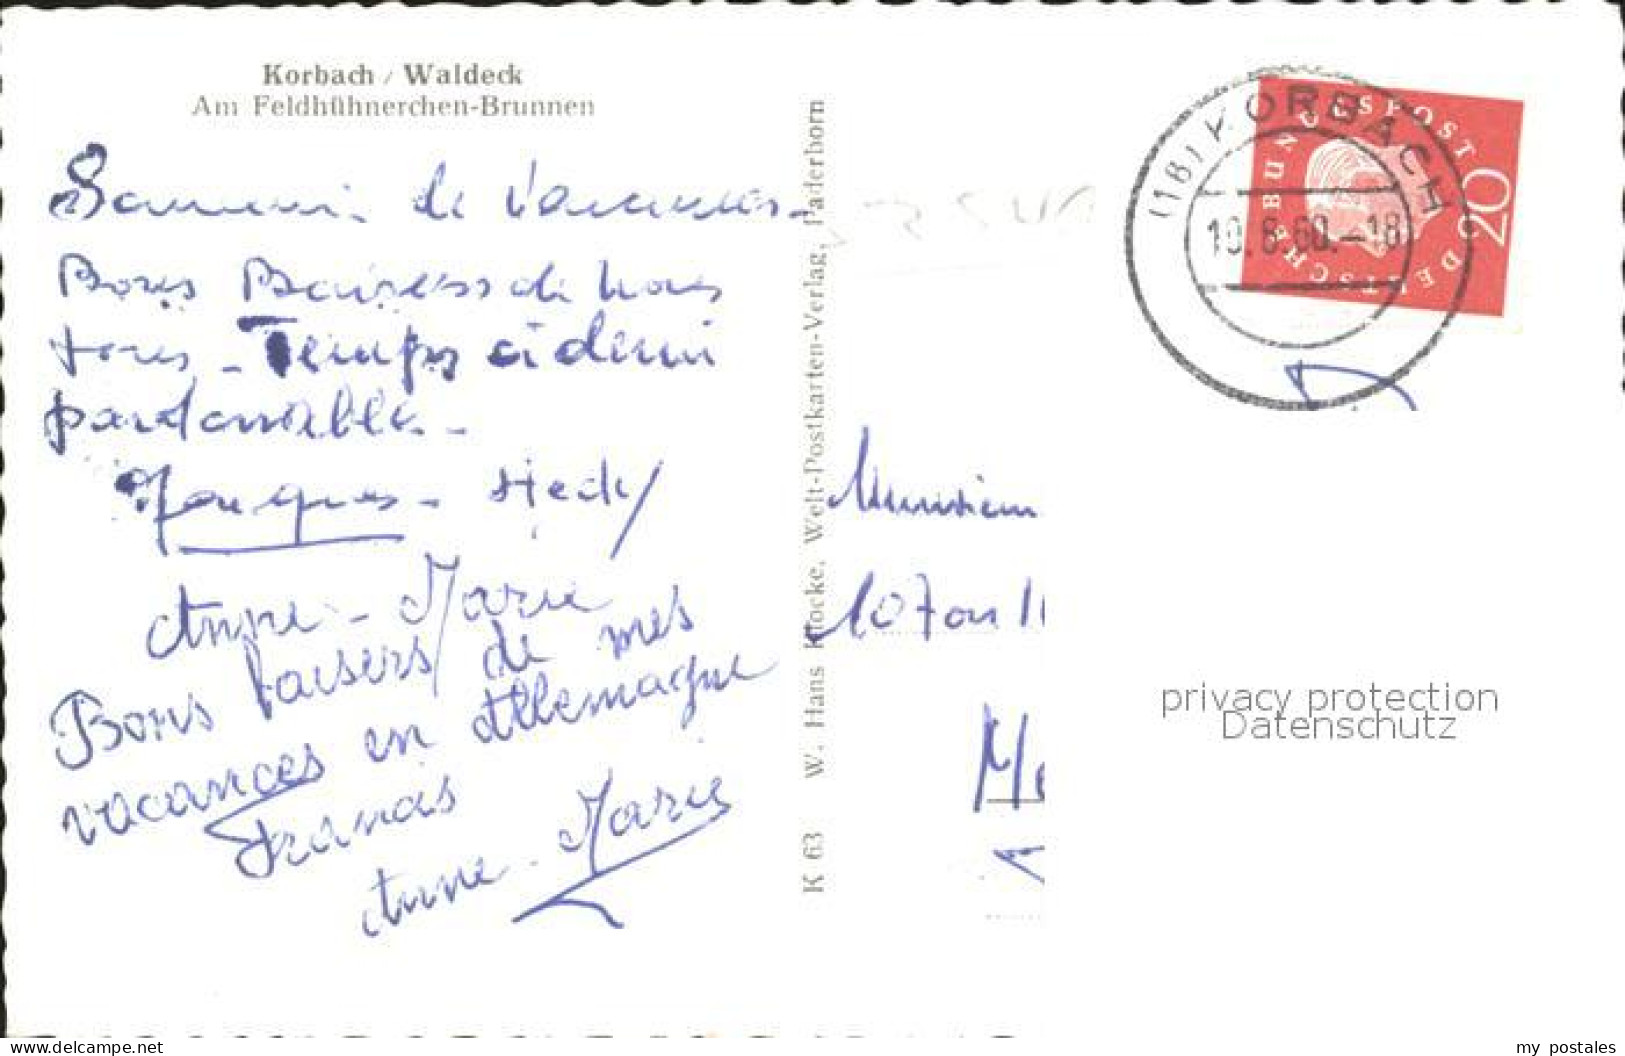 Korbach / Waldeck
Am Feldhühnerchen-Brunnen
Souvenir de Vacances -
Bons Baisers de nous
tous - Temps à demi
pardonnable -
Jacques - Hedy
Anne-Marie
Bons baisers de mes
vacances en Allemagne
Francis
Anne-Marie
K 63 W. Hans Klocke, Welt-Postkarten-Verlag, Paderborn
(16) KORBACH
10.8.60.-18
DEUTSCHE BUNDESPOST
20
privacy protection
Datenschutz
www.delcampe.net
my_postales